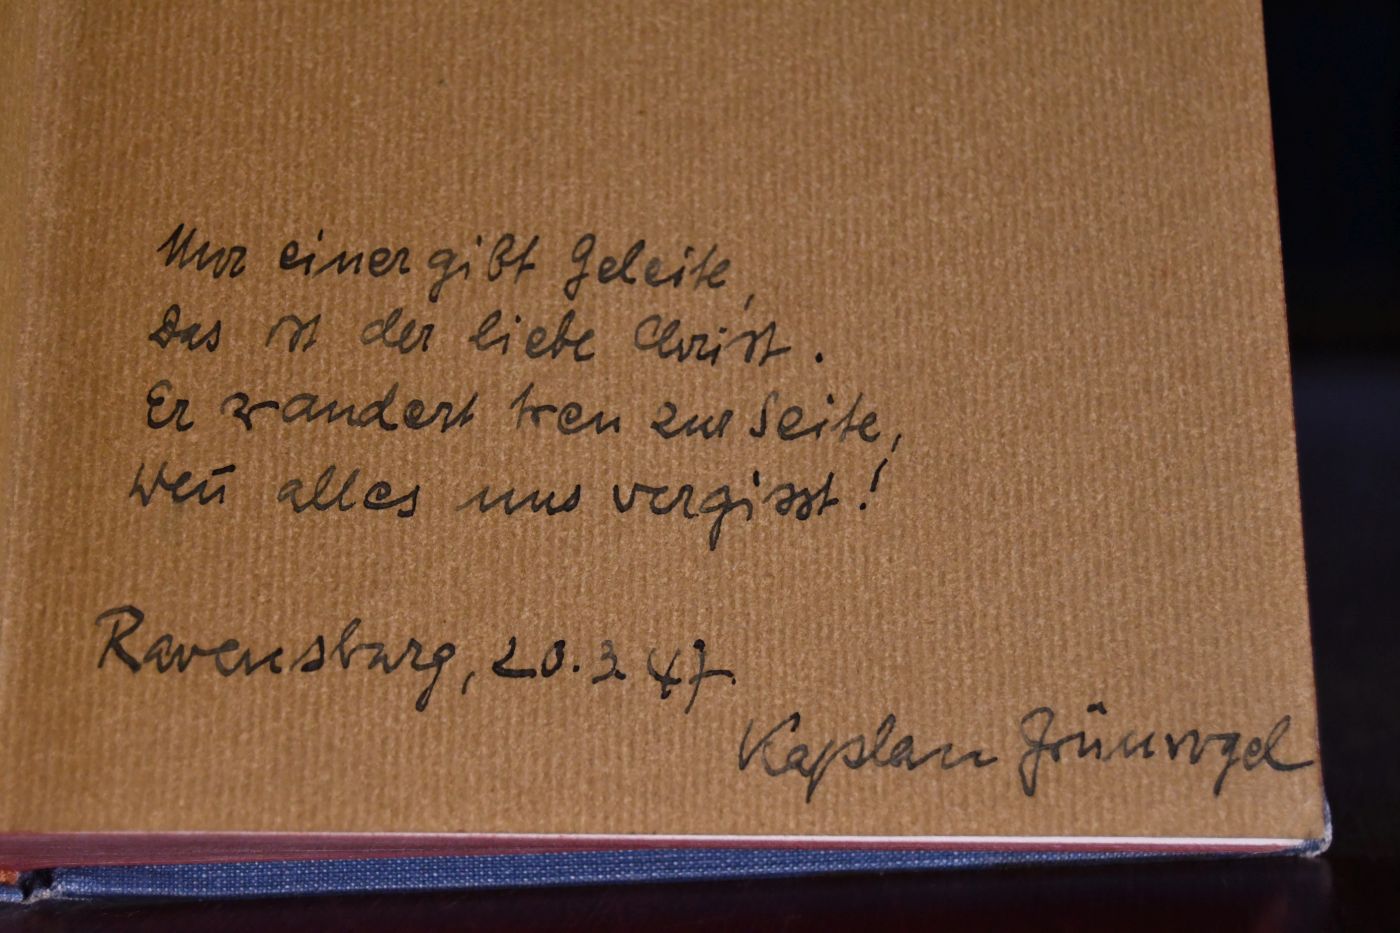 Nur einer gibt Geleite,
Das ist der liebe Christ.
Er wandert treu zur Seite,
Weñ alles uns vergisst!
Ravensburg, 20.3.47.
Kaplan Grünvogel